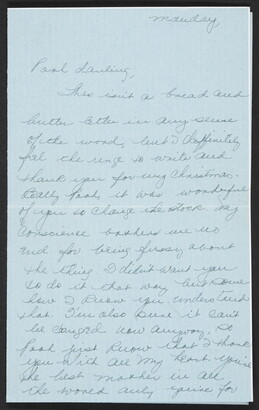 Monday
Pooh Darling,
This isn't a bread and
butter letter in any sense
of the word, but I definitely
feel the urge to write and
thank you for my Christmas.
Really Pooh, it was wonderful
of you to change the stock. My
conscience bothers me no
end for being fussy about
the thing I didn't want you
to do it that way but some
how I know you understand
that. I'm also sure it can't
be changed now anyway. So
Pooh just know that I thank
you with all my heart. You're
the best mother in all
the world and you're for